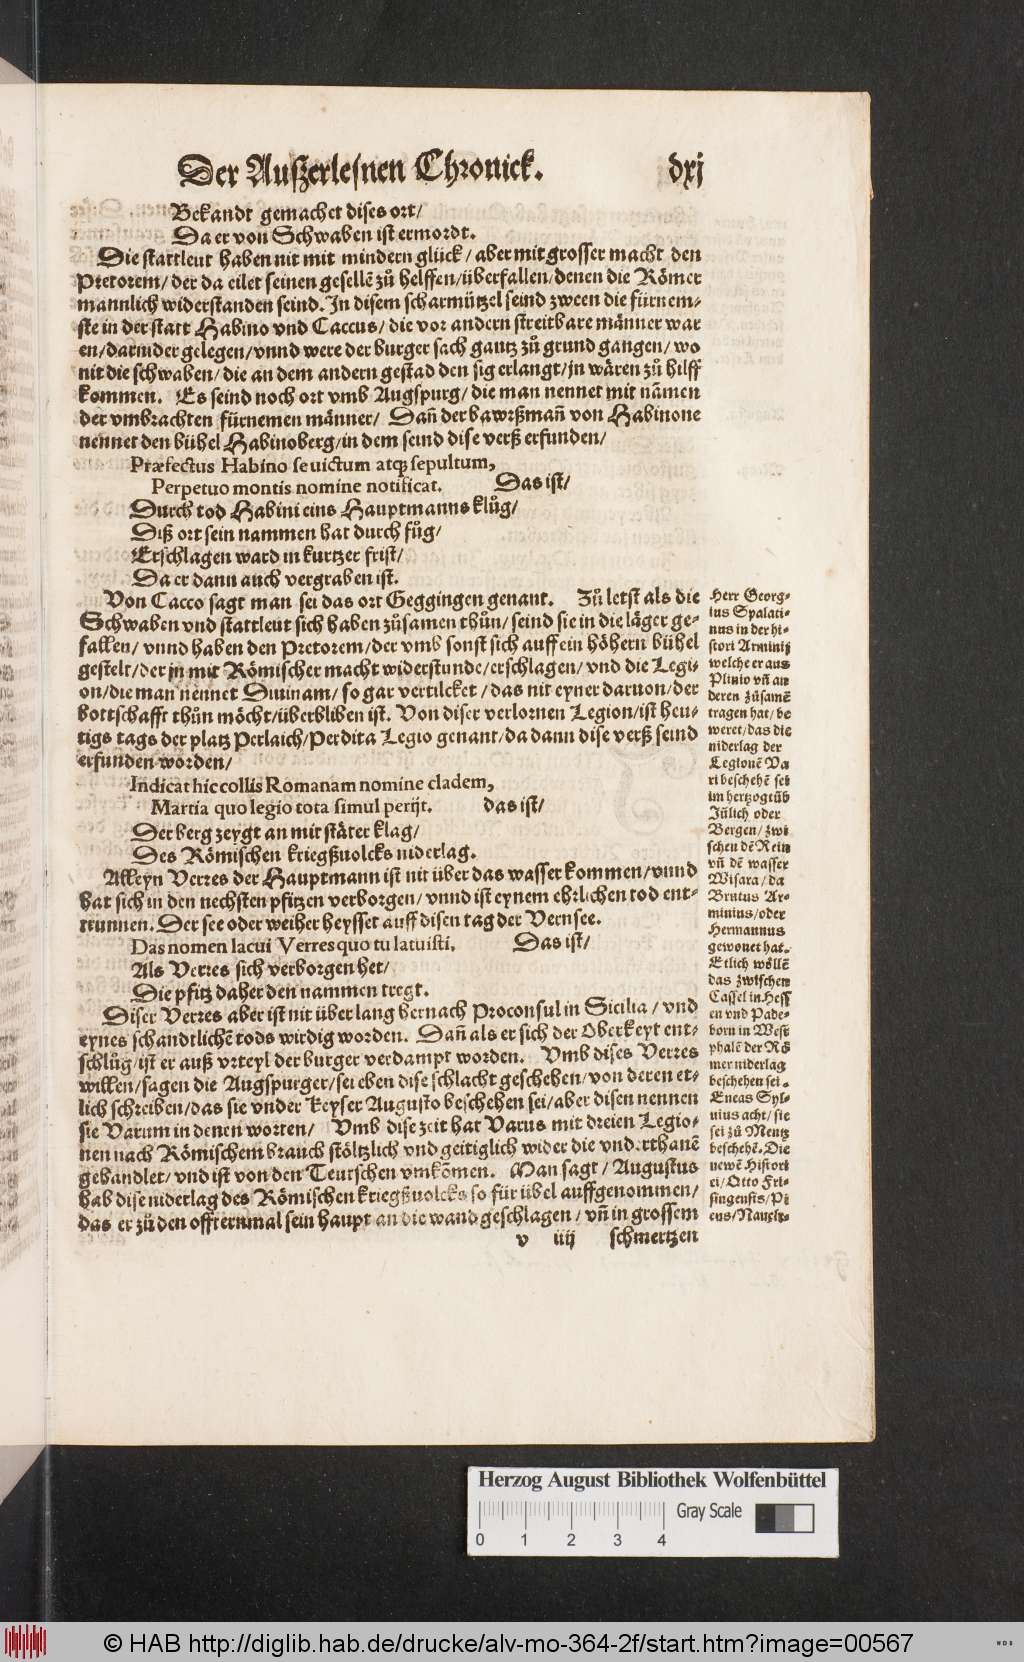 Der Außerlesnen Chronick. dxj
Bekandt gemachet dises ort/
Da er von Schwaben ist ermordt.
Die stattleut haben nit mit mindern glück/ aber mit grosser macht den
Pretorem/ der da eilet seinen gesellē zů helffen/überfallen/denen die Römer
mannlich widerstanden seind. In disem scharmützel seind zween die fürnem-
ste in der statt Habino vnd Caccus/ die vor andern streitbare männer war
en/darnider gelegen/vnnd were der burger sach gantz zů grund gangen/ wo
nit die schwaben/ die an dem andern gestad den sig erlangt/jn wären zů hilff
kommen. Es seind noch ort vmb Augspurg/ die man nennet mit nāmen
der vmbrachten fürnemen männer/ Dañ der bawrßmañ von Habinone
nennet den bühel Habinoberg/in dem seind dise verß erfunden/
Præfectus Habino se victum atq; sepultum,
Perpetuo montis nomine notificat. Das ist/
Durch tod Habini eins Hauptmanns klůg/
Diß ort sein nammen hat durch fůg/
Erschlagen ward in kurtzer frist/
Da er dann auch vergraben ist.
Von Cacco sagt man sei das ort Geggingen genant. Zů letst als die
Schwaben vnd stattleut sich haben zůsamen thůn/ seind sie in die läger ge-
fallen/ vnnd haben den Pretorem/der vmb sonst sich auff ein höhern bühel
gestelt/der jn mit Römischer macht widerstunde/erschlagen/ vnd die Legi-
on/die man nennet Diuinam/ so gar vertilcket/ das nit eyner daruon/der
bottschafft thůn möcht/überbliben ist. Von diser verlornen Legion/ist heu-
tigs tags der platz Perlaich/Perdita Legio genant/da dann dise verß seind
erfunden worden/
Indicat hic collis Romanam nomine cladem,
Martia quo legio tota simul perijt. das ist/
Der berg zeygt an mit stäter klag/
Des Römischen kriegßuolcks niderlag.
Alleyn Verres der Hauptmann ist nit über das wasser kommen/vnnd
hat sich in den nechsten pfitzen verborgen/ vnnd ist eynem ehrlichen tod ent-
trunnen. Der see oder weiher heysset auff disen tag der Vernsee.
Das nomen lacui Verres quo tu latuisti, Das ist/
Als Verres sich verborgen het/
Die pfitz daher den nammen tregt.
Diser Verres aber ist nit über lang hernach Proconsul in Sicilia/ vnd
eynes schandtlichē tods wirdig worden. Dañ als er sich der Oberkeyt ent-
schlůg/ist er auß vrteyl der burger verdampt worden. Vmb dises Verres
willen/sagen die Augspurger/sei eben dise schlacht geschehen/von deren et-
lich schreiben/das sie vnder Keyser Augusto beschehen sei/aber disen nennen
sie Varum in denen worten/ Vmb dise zeit hat Varus mit dreien Legio-
nen nach Römischem brauch stöltzlich vnd geitiglich wider die vnderthanē
gehandlet/ vnd ist von den Teutschen vmkōmen. Man sagt/ Augustus
hab dise niderlag des Römischen kriegßuolcks so für übel auffgenommen/
das er zů den offternmal sein haupt an die wand geschlagen/ vñ in grossem
v iiij schmertzen
Herr Georg-
ius Spalati-
nus in der hi-
stori Arminij
welche er aus
Plinio vñ an
deren zůsamē
tragen hat/ be
weret/das die
niderlag der
Legionē Va
ri beschehē sei
im hertzogtūb
Jülich oder
Bergen/ zwi
schen dē Rein
vñ dē wasser
Wisara/ da
Brutus Ar-
minius/oder
Hermannus
gewonet hat.
Etlich wöllē
das zwischen
Cassel in Hess
en vnd Pade-
born in West
phalē der Rö
mer niderlag
beschehen sei.
Eneas Syl-
uius acht/ sie
sei zů Mentz
beschehē. Die
newē Histori
ci/ Otto Fri-
singensis/ Pi
cus/Naucle-
Herzog August Bibliothek Wolfenbüttel
0 1 2 3 4
Gray Scale
© HAB http://diglib.hab.de/drucke/alv-mo-364-2f/start.htm?image=00567